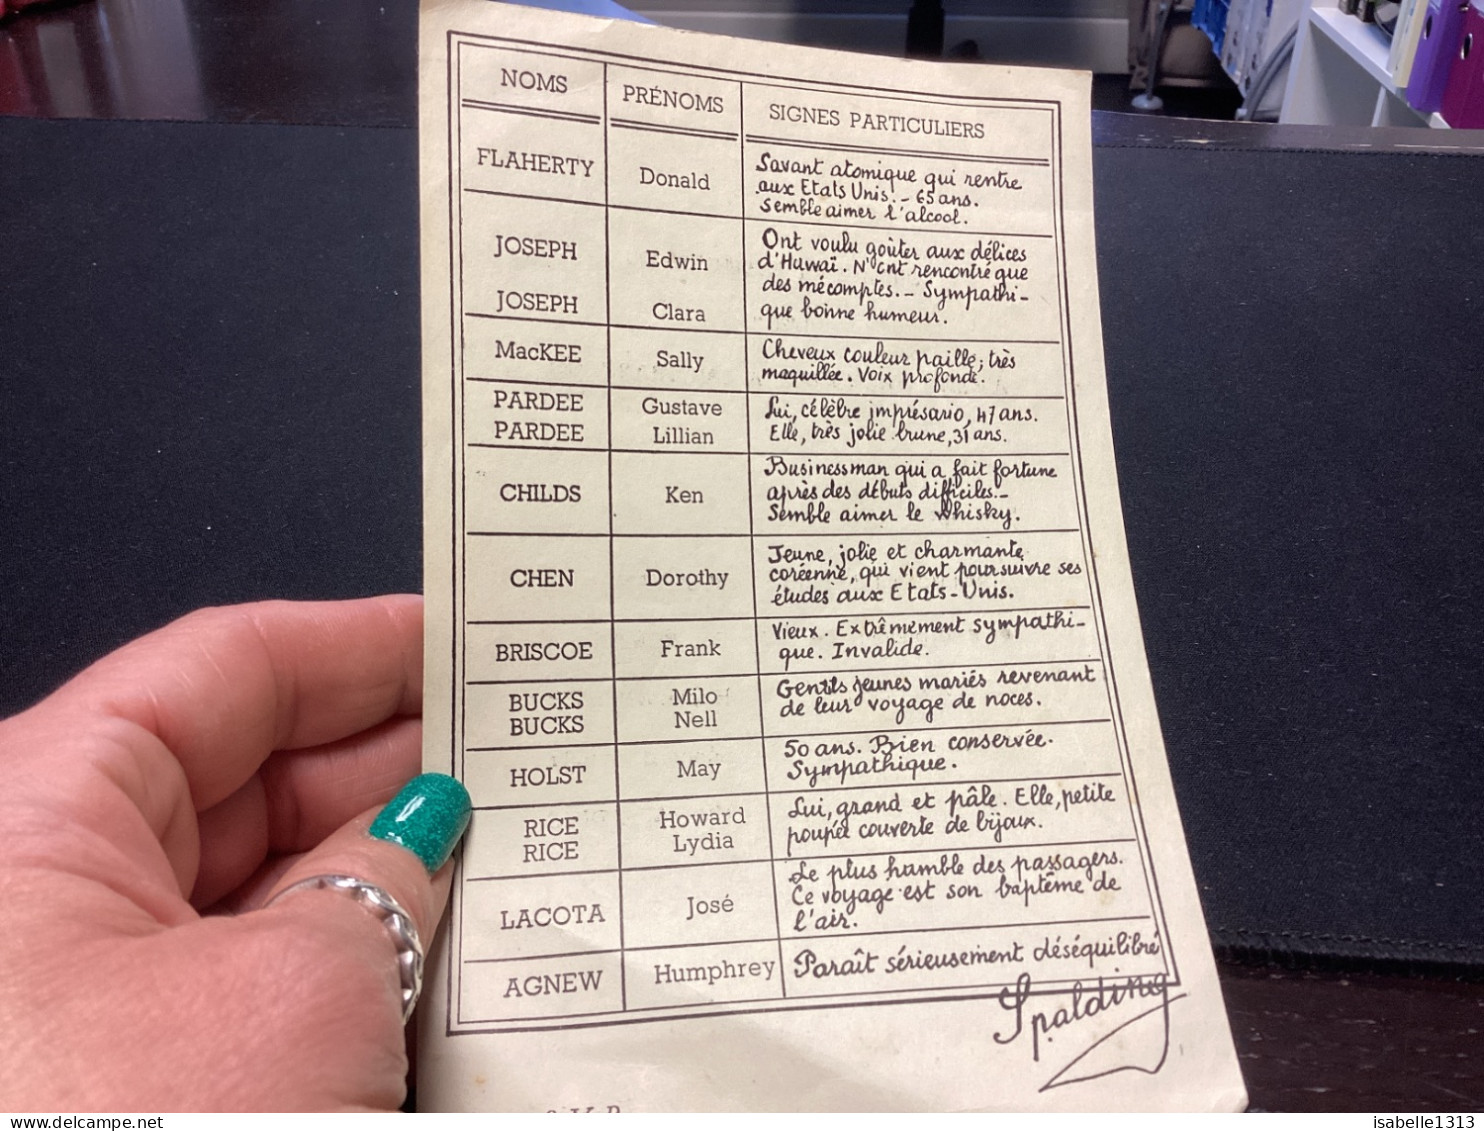 NOMS PRÉNOMS SIGNES PARTICULIERS
FLAHERTY Donald Savant atomique qui rentre
aux Etats Unis.- 65 ans.
Semble aimer l'alcool.
JOSEPH Edwin Ont voulu goûter aux délices
d'Huwaï. N'ont rencontré que
des mécomptes.- Sympathi-
JOSEPH Clara que bonne humeur.
MacKEE Sally Cheveux couleur paille; très
maquillée. Voix profonde.
PARDEE Gustave Lui, célèbre imprésario, 47 ans.
PARDEE Lillian Elle, très jolie brune, 31 ans.
CHILDS Ken Businessman qui a fait fortune
après des débuts difficiles.-
Semble aimer le whisky.
CHEN Dorothy Jeune, jolie et charmante
coréenne, qui vient poursuivre ses
études aux Etats-Unis.
BRISCOE Frank Vieux. Extrêmement sympathi-
que. Invalide.
BUCKS Milo Gentils jeunes mariés revenant
BUCKS Nell de leur voyage de noces.
HOLST May 50 ans. Bien conservée.
Sympathique.
RICE Howard Lui, grand et pâle. Elle, petite
RICE Lydia poupée couverte de bijoux.
LACOTA José Le plus humble des passagers.
Ce voyage est son baptême de
l'air.
AGNEW Humphrey Paraît sérieusement déséquilibré
Spalding
isabelle1313